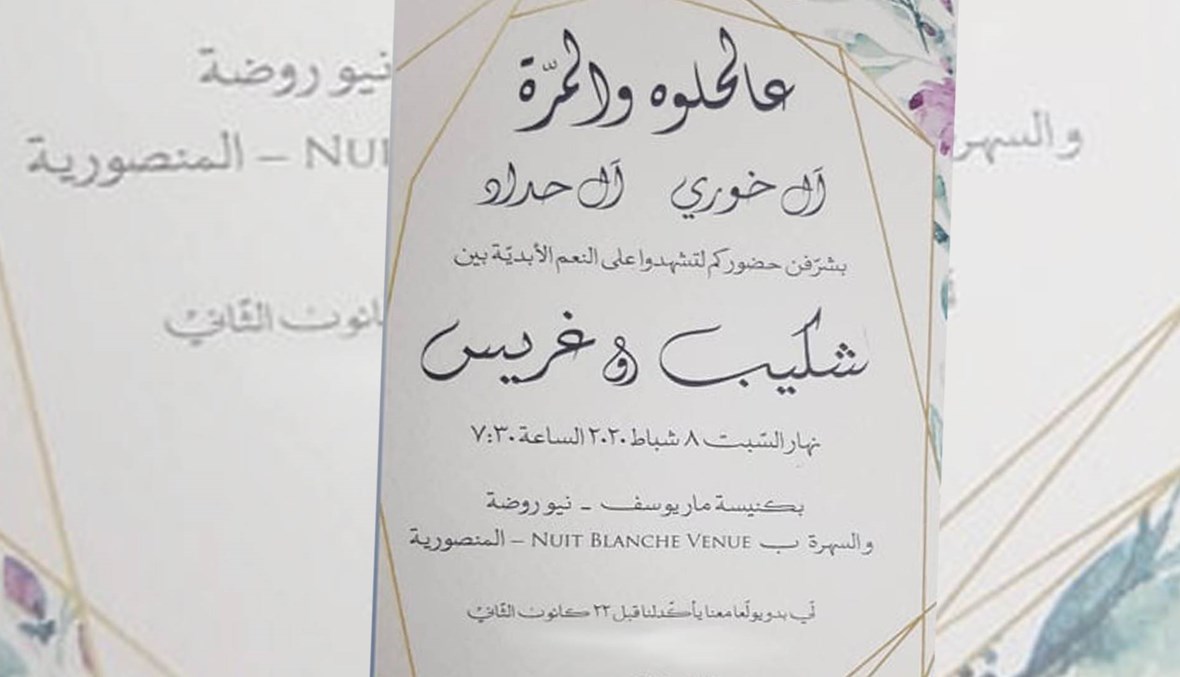 عالحلوه والمرّة
آل خوري آل حداد
بشرّفن حضوركم لتشهدوا على النعم الأبديّة بين
شكيب و غريس
نهار السّبت ٨ شباط ٢٠٢٠ الساعة ٧:٣٠
بكنيسة مار يوسف - نيو روضة
والسهرة ب NUIT BLANCHE VENUE – المنصورية
لّي بدو يولّعا معنا يأكّدلنا قبل ٢٢ كانون الثّاني
نيو روضة
والسهر
NUI – المنصورية
كانون الثّاني